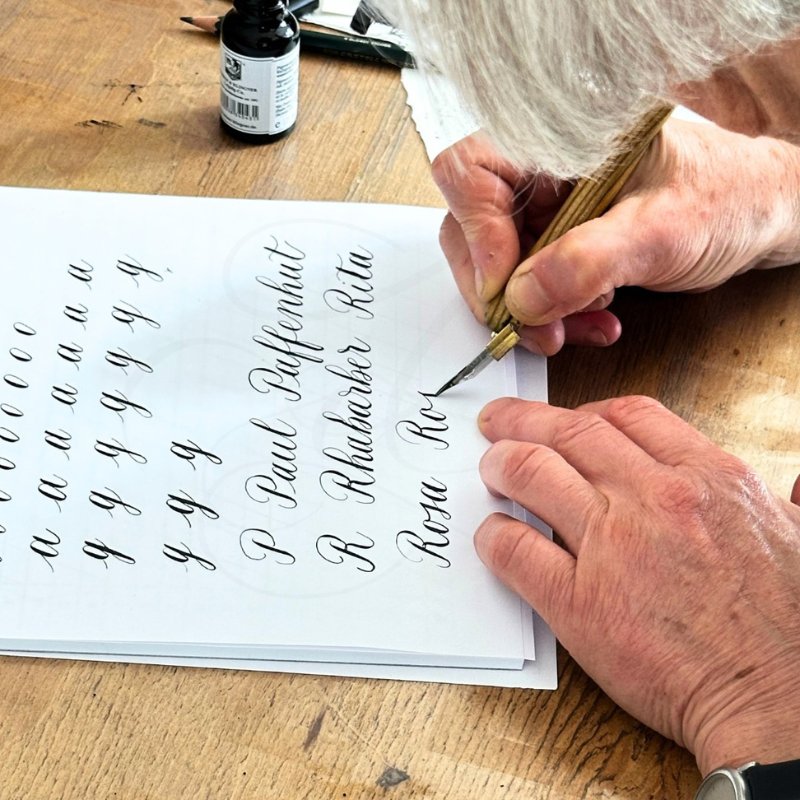 o o o o o o
a a a a a a a
g g g g g g g
g g g
P Paul Paffenhut
R Rhabarber Rita
Rosa Ro
KLINGNER